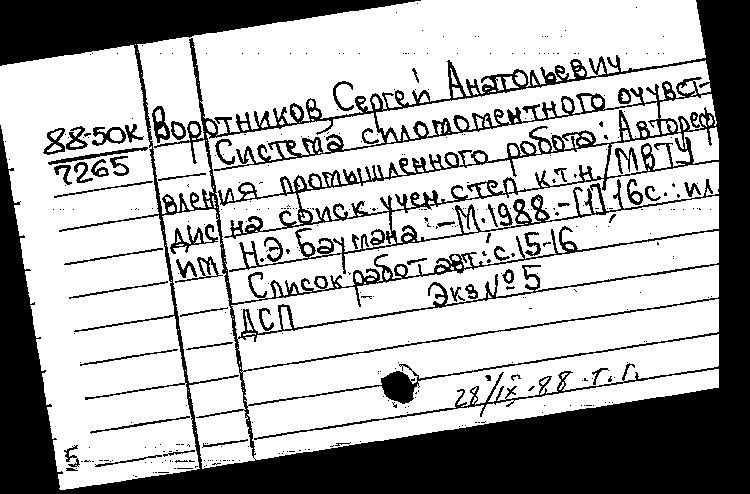 88-50К
7265
Воротников, Сергей Анатольевич.
Система силомоментного очувст-
вления промышленного робота: Автореф.
дис на соиск. учен. степ. к.т.н. / МВТУ
им. Н.Э. Баумана. - М. 1988. - [1], 16 с.: ил.
Список работ авт.: с. 15-16
ДСП Экз № 5
28/IX-88 г.
5